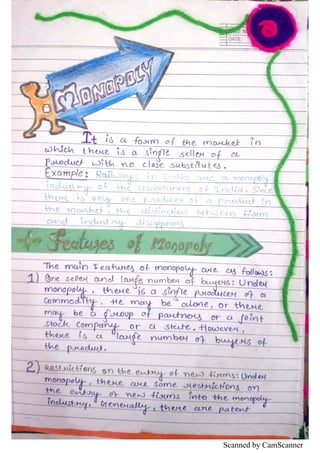 DATE:
MONOPOLY
It is a form of the market in
which there is a single seller of a
product with no close substitutes.
Example: Railways in India are a monopoly
industry of the Government of India. Since
there is only one producer of a product in
the market, the distinction between firm
and industry disappears.
Features of Monopoly
The main features of monopoly are as follows:
1) One seller and large number of buyers: Under
monopoly, there is a single producer of a
commodity. He may be alone, or there
may be a group of partners or a joint
stock company or a state. However,
there is a large number of buyers of
the product.
2) Restrictions on the entry of new firms: Under
monopoly, there are some restrictions on
the entry of new firms into the monopoly
industry. Generally, there are patent
Scanned by CamScanner